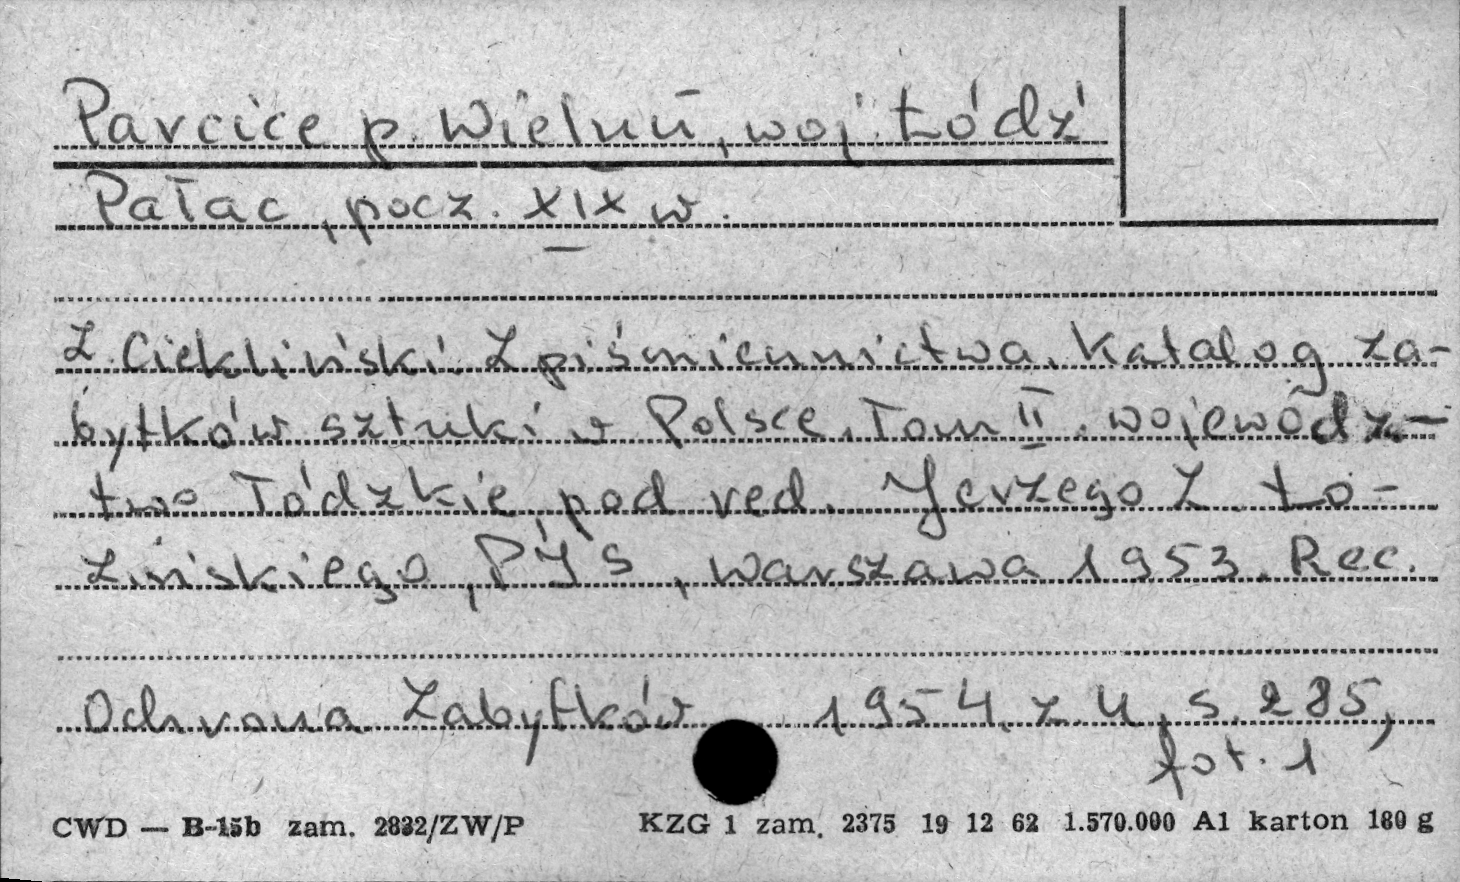 Parcice p. Wieluń, woj. Łódź
Pałac, pocz. XIX w.
Z. Ciekliński. Z piśmiennictwa. Katalog za-
bytków sztuki w Polsce. Tom II. wojewódz-
two łódzkie, pod red. Jerzego Z. Ło-
zińskiego, PIS, Warszawa 1953. Rec.
Ochrona Zabytków 1954 z. 4, s. 285,
fot. 1
CWD — B-15b zam. 2832/ZW/P KZG 1 zam. 2375 19 12 62 1.570.000 A1 karton 180 g